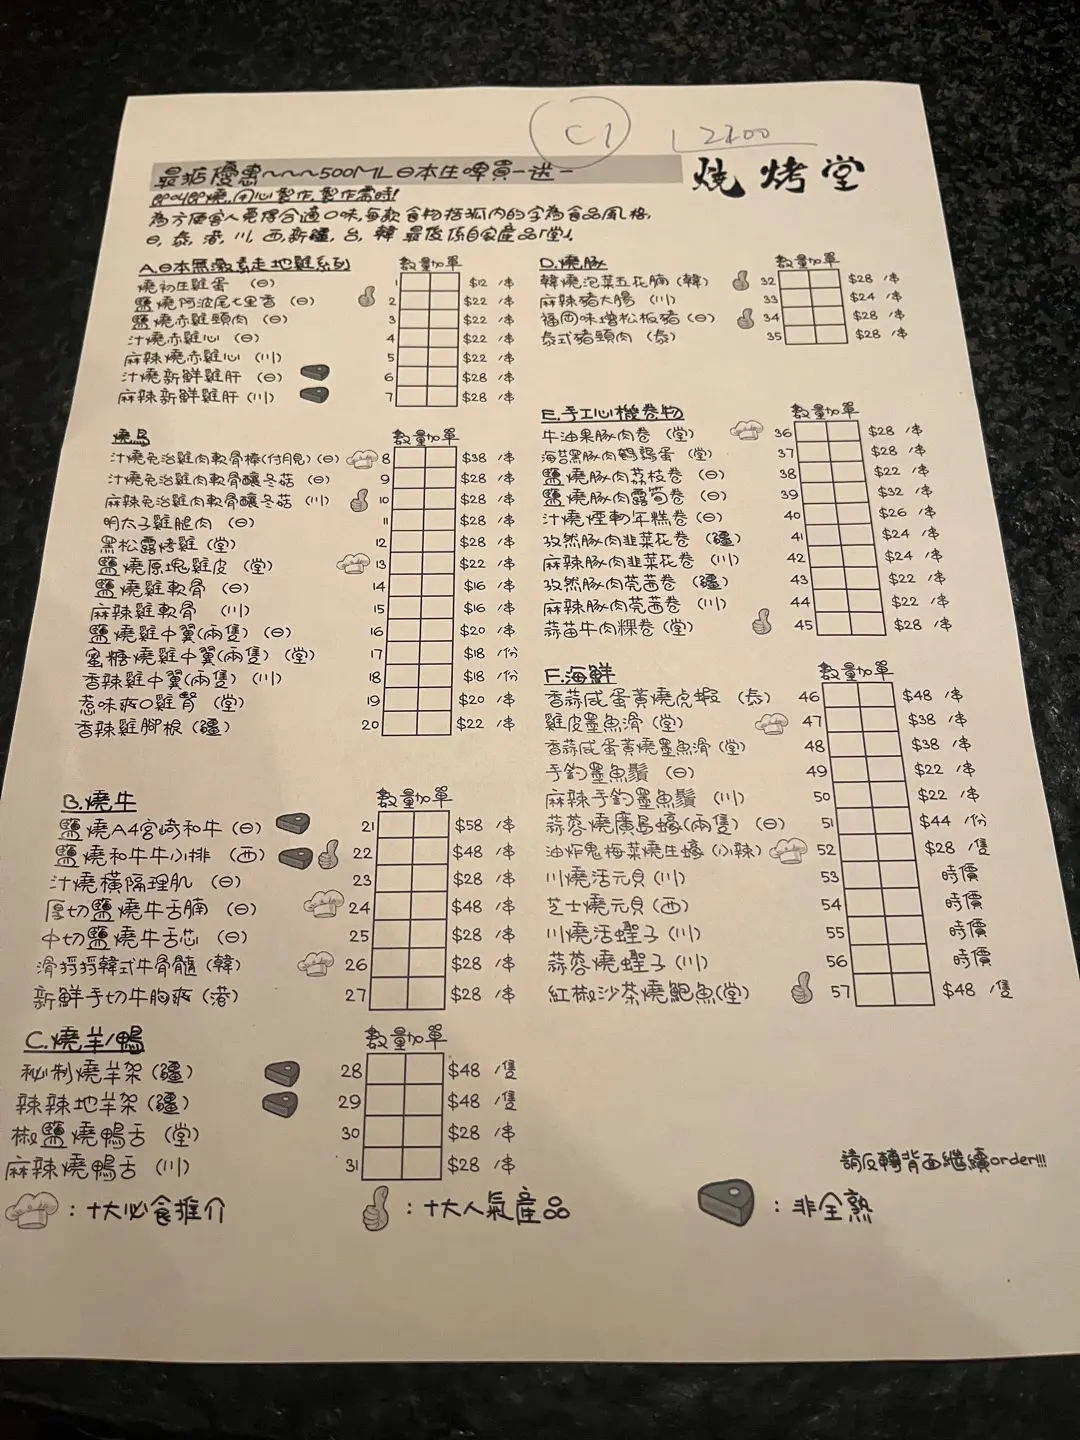 C1
2200
最掂優惠~~~500ML日本生啤買一送一
燒烤堂
即叫即燒,用心製作,製作需時!
為方便客人覓得合適口味,每款食物括弧內的字為食品風格,
日,泰,港,川,西,新疆,台,韓 最後係自家產品「堂」,
A.日本無激素走地雞系列 數量加單
燒初生雞蛋 (日) 1 $12 /串
鹽燒阿波尾七里香 (日) 2 $22 /串
鹽燒赤雞頸肉 (日) 3 $22 /串
汁燒赤雞心 (日) 4 $22 /串
麻辣燒赤雞心 (川) 5 $22 /串
汁燒新鮮雞肝 (日) 6 $28 /串
麻辣新鮮雞肝 (川) 7 $28 /串
燒鳥 數量加單
汁燒免治雞肉軟骨棒(付月見) (日) 8 $38 /串
汁燒免治雞肉軟骨釀冬菇 (日) 9 $28 /串
麻辣免治雞肉軟骨釀冬菇 (川) 10 $28 /串
明太子雞腿肉 (日) 11 $28 /串
黑松露烤雞 (堂) 12 $28 /串
鹽燒原塊雞皮 (堂) 13 $22 /串
鹽燒雞軟骨 (日) 14 $16 /串
麻辣雞軟骨 (川) 15 $16 /串
鹽燒雞中翼(兩隻) (日) 16 $20 /串
蜜糖燒雞中翼(兩隻) (堂) 17 $18 /份
香辣雞中翼(兩隻) (川) 18 $18 /份
惹味爽口雞腎 (堂) 19 $20 /串
香辣雞腳根 (疆) 20 $22 /串
B.燒牛 數量加單
鹽燒A4宮崎和牛 (日) 21 $58 /串
鹽燒和牛牛小排 (西) 22 $48 /串
汁燒橫隔理肌 (日) 23 $28 /串
厚切鹽燒牛舌腩 (日) 24 $48 /串
中切鹽燒牛舌芯 (日) 25 $28 /串
滑捋捋韓式牛骨髓 (韓) 26 $28 /串
新鮮手切牛胸爽 (港) 27 $28 /串
C.燒羊/鴨 數量加單
秘制燒羊架 (疆) 28 $48 /隻
辣辣地羊架 (疆) 29 $48 /隻
椒鹽燒鴨舌 (堂) 30 $28 /串
麻辣燒鴨舌 (川) 31 $28 /串
D.燒豚 數量加單
韓燒泡菜五花腩 (韓) 32 $28 /串
麻辣豬大腸 (川) 33 $24 /串
福岡味增松板豬 (日) 34 $28 /串
泰式豬頸肉 (泰) 35 $28 /串
E.手工心機卷物 數量加單
牛油果豚肉卷 (堂) 36 $28 /串
海苔黑豚肉鵪鶉蛋 (堂) 37 $28 /串
鹽燒豚肉荔枝卷 (日) 38 $22 /串
鹽燒豚肉露筍卷 (日) 39 $32 /串
汁燒煙韌年糕卷 (日) 40 $26 /串
孜然豚肉韭菜花卷 (疆) 41 $24 /串
麻辣豚肉韭菜花卷 (川) 42 $24 /串
孜然豚肉芫茜卷 (疆) 43 $22 /串
麻辣豚肉芫茜卷 (川) 44 $22 /串
蒜苗牛肉粿卷 (堂) 45 $28 /串
F.海鮮 數量加單
香蒜咸蛋黃燒虎蝦 (泰) 46 $48 /串
雞皮墨魚滑 (堂) 47 $38 /串
香蒜咸蛋黃燒墨魚滑 (堂) 48 $38 /串
手釣墨魚鬚 (日) 49 $22 /串
麻辣手釣墨魚鬚 (川) 50 $22 /串
蒜蓉燒廣島蠔(兩隻) (日) 51 $44 /份
油炸鬼梅菜燒生蠔 (小辣) 52 $28 /隻
川燒活元貝 (川) 53 時價
芝士燒元貝 (西) 54 時價
川燒活蟶子 (川) 55 時價
蒜蓉燒蟶子 (川) 56 時價
紅椒沙茶燒鮑魚(堂) 57 $48 /隻
請反轉背面繼續order!!!
:十大必食推介 :十大人氣產品 :非全熟